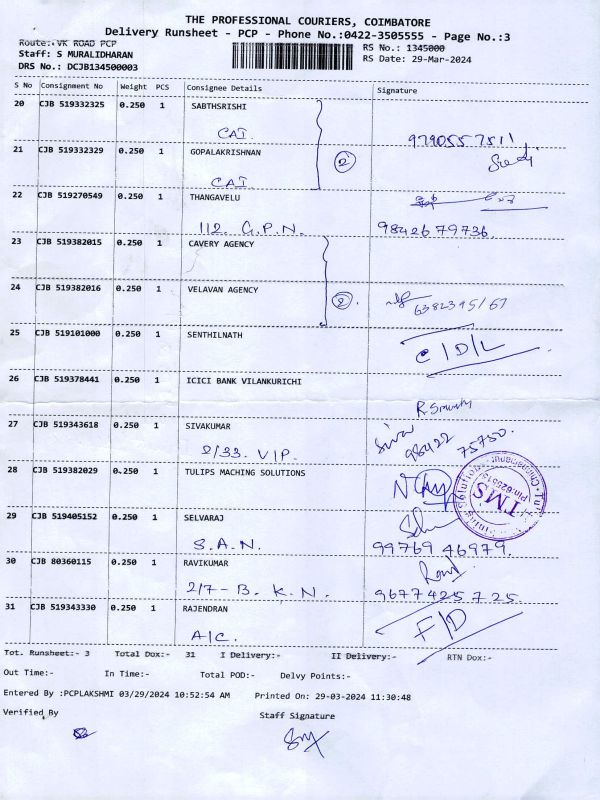 THE PROFESSIONAL COURIERS, COIMBATORE
Delivery Runsheet - PCP - Phone No.:0422-3505555 - Page No.:3
Route:-VK ROAD PCP
RS No.: 1345000
Staff: S MURALIDHARAN
RS Date: 29-Mar-2024
DRS No.: DCJB134500003
S No Consignment No Weight PCS Consignee Details Signature
20 CJB 519332325 0.250 1 SABTHSRISHI
CAI.
9790557511
21 CJB 519332329 0.250 1 GOPALAKRISHNAN
2
CAI.
22 CJB 519270549 0.250 1 THANGAVELU
112. G.P.N. 98426 79736.
23 CJB 519382015 0.250 1 CAVERY AGENCY
24 CJB 519382016 0.250 1 VELAVAN AGENCY
2
25 CJB 519101000 0.250 1 SENTHILNATH
C/D/L
26 CJB 519378441 0.250 1 ICICI BANK VILANKURICHI
27 CJB 519343618 0.250 1 SIVAKUMAR
2/33. V.I.P. Siva 98422 75750.
28 CJB 519382029 0.250 1 TULIPS MACHING SOLUTIONS
TMS
29 CJB 519405152 0.250 1 SELVARAJ
S.A.N. 99769 46979.
30 CJB 80360115 0.250 1 RAVIKUMAR
2/7-B. K.N. 96774 25725.
31 CJB 519343330 0.250 1 RAJENDRAN
A/C. F/D
Tot. Runsheet:- 3 Total Dox:- 31 I Delivery:- II Delivery:- RTN Dox:-
Out Time:- In Time:- Total POD:- Delvy Points:-
Entered By :PCPLAKSHMI 03/29/2024 10:52:54 AM Printed On: 29-03-2024 11:30:48
Verified By Staff Signature